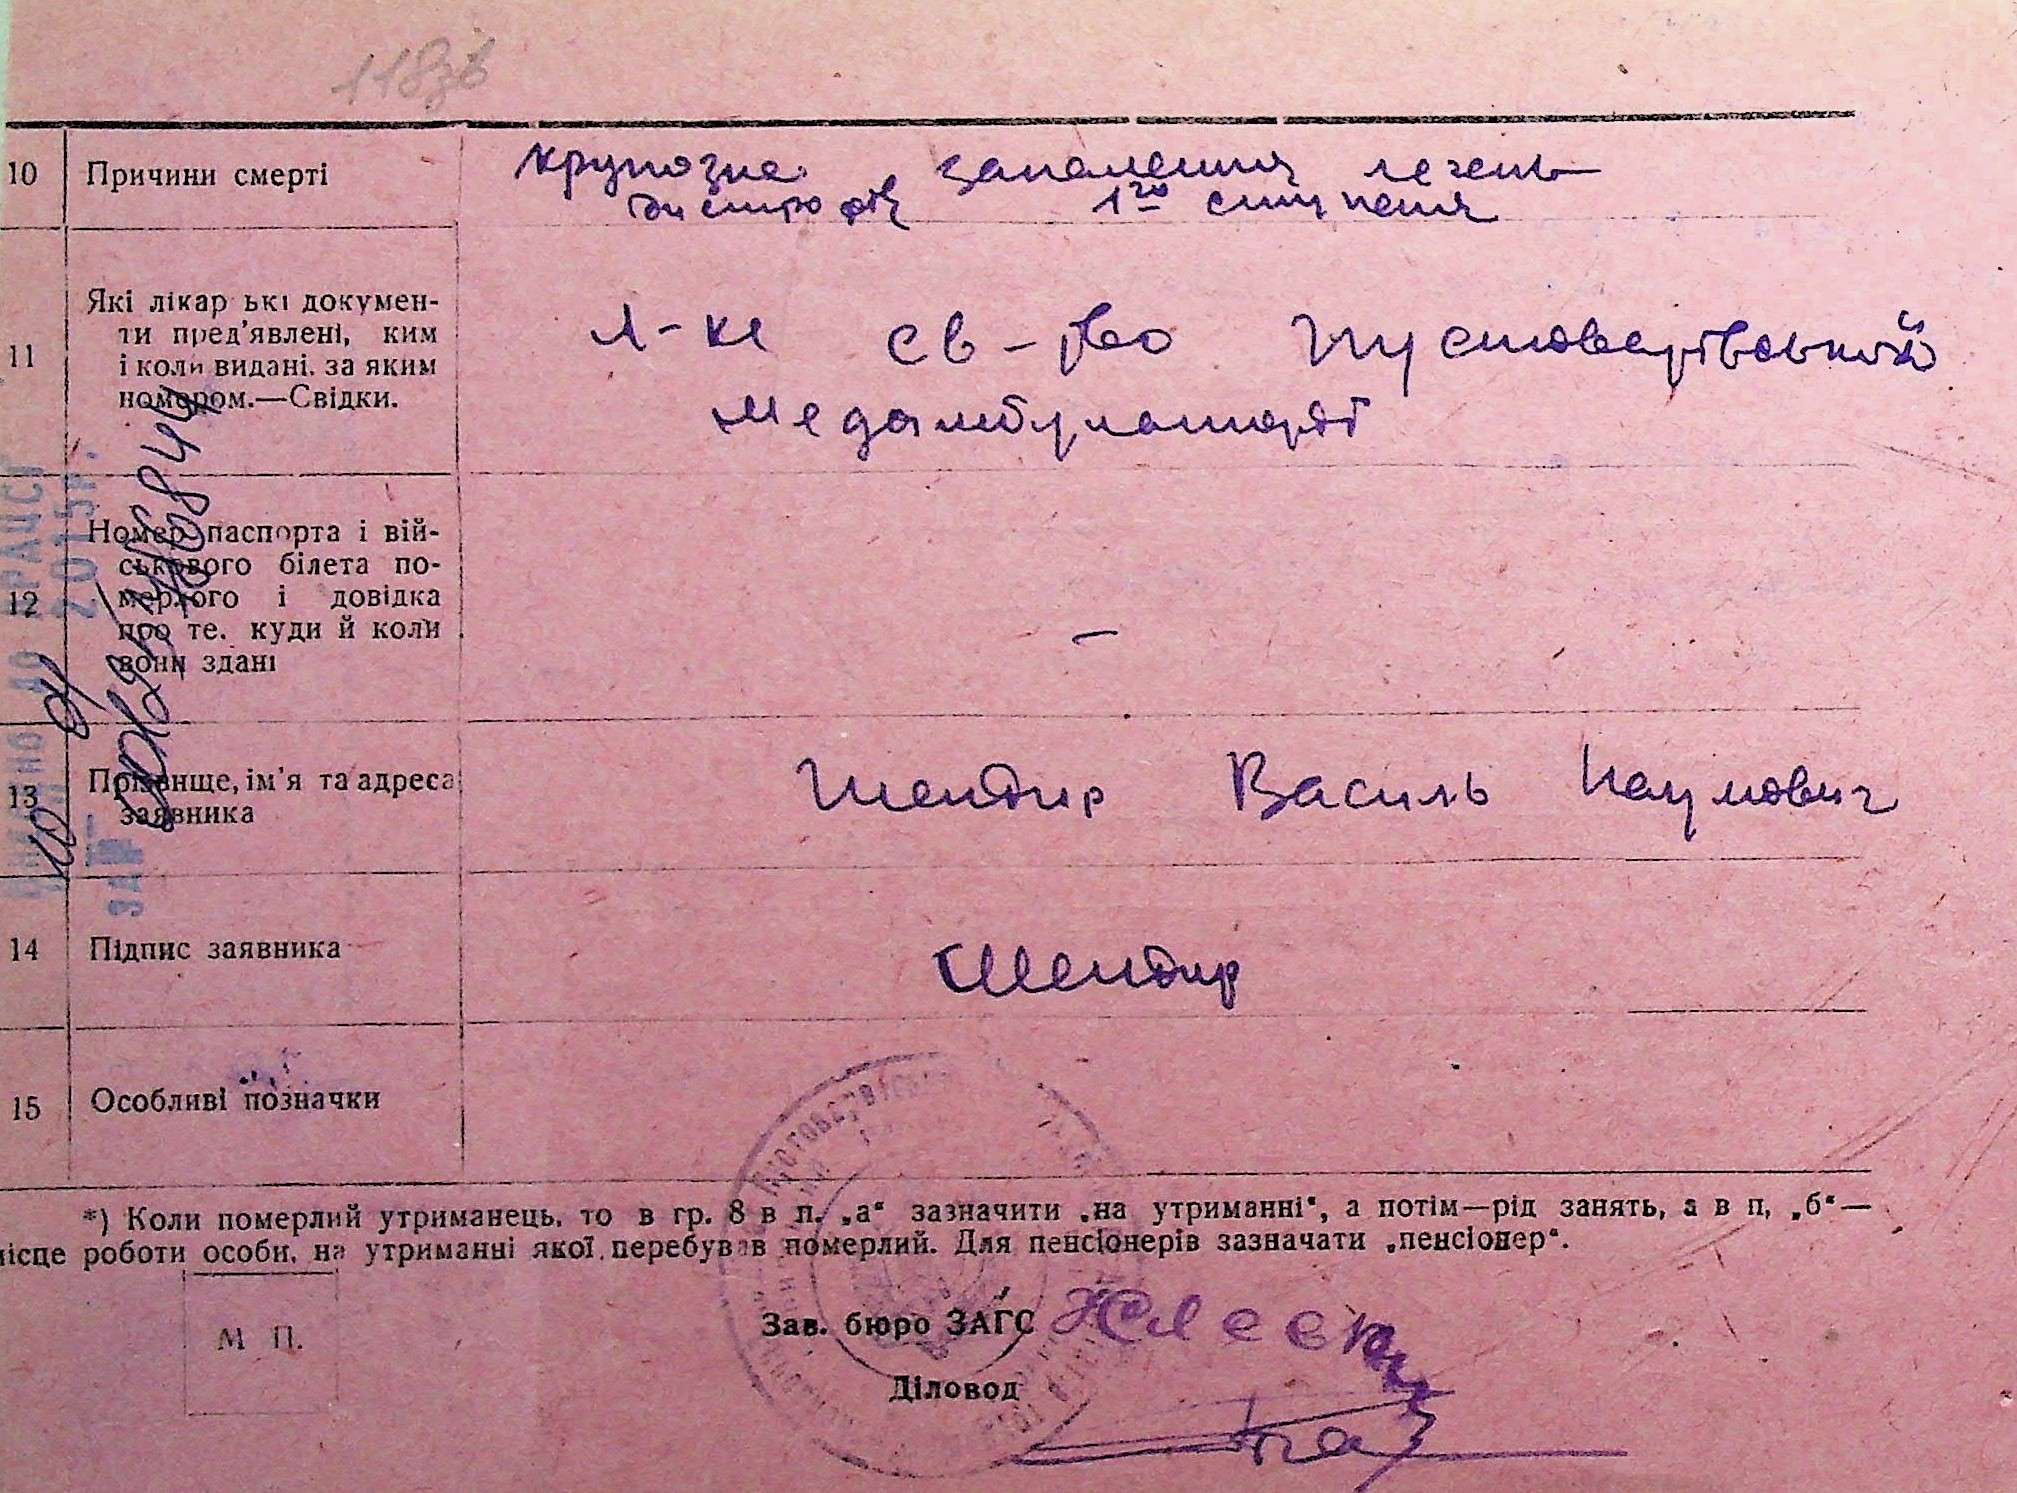 118зв
10 Причини смерті
крупозне запалення легень
дистрофія 1го ступеня
11 Які лікар ькі докумен-
ти пред'явлені, ким
і коли видані. за яким
номером.—Свідки.
л-ке св-во Пустоварівської
медамбулаторії
12 Номер паспорта і вій-
ськового білета по-
мерлого і довідка
про те. куди й коли
вони здані
—
13 Прізвище, ім'я та адреса
заявника
Шендир Василь Наумович
14 Підпис заявника
Шендир
15 Особливі позначки
*) Коли померлий утриманець, то в гр. 8 в п. „а“ зазначити „на утриманні“, а потім—рід занять, а в п, „б“—
ісце роботи особи, на утриманні якої перебував померлий. Для пенсіонерів зазначати „пенсіонер“.
М П.
Зав. бюро ЗАГС
Діловод
ДРАЦСГ
2015р.